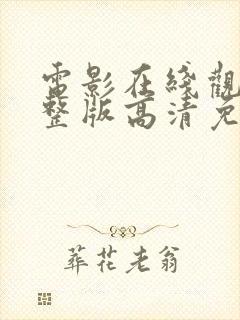 電影在綫觀
整版高清免
葬花老翁